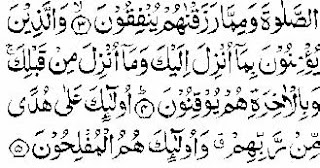 الصَّلٰوةَ وَمِمَّا رَزَقْنٰهُمْ يُنْفِقُوْنَ ﴿۳﴾ وَالَّذِيْنَ
يُؤْمِنُوْنَ بِمَاۤ اُنْزِلَ اِلَيْكَ وَمَاۤ اُنْزِلَ مِنْ قَبْلِكَ ۚ
وَبِالْاٰخِرَةِ هُمْ يُوْقِنُوْنَ ﴿۴﴾ اُولٰٓئِكَ عَلٰى هُدًى
مِّنْ رَّبِّهِمْ ۗ وَاُولٰٓئِكَ هُمُ الْمُفْلِحُوْنَ ﴿۵﴾